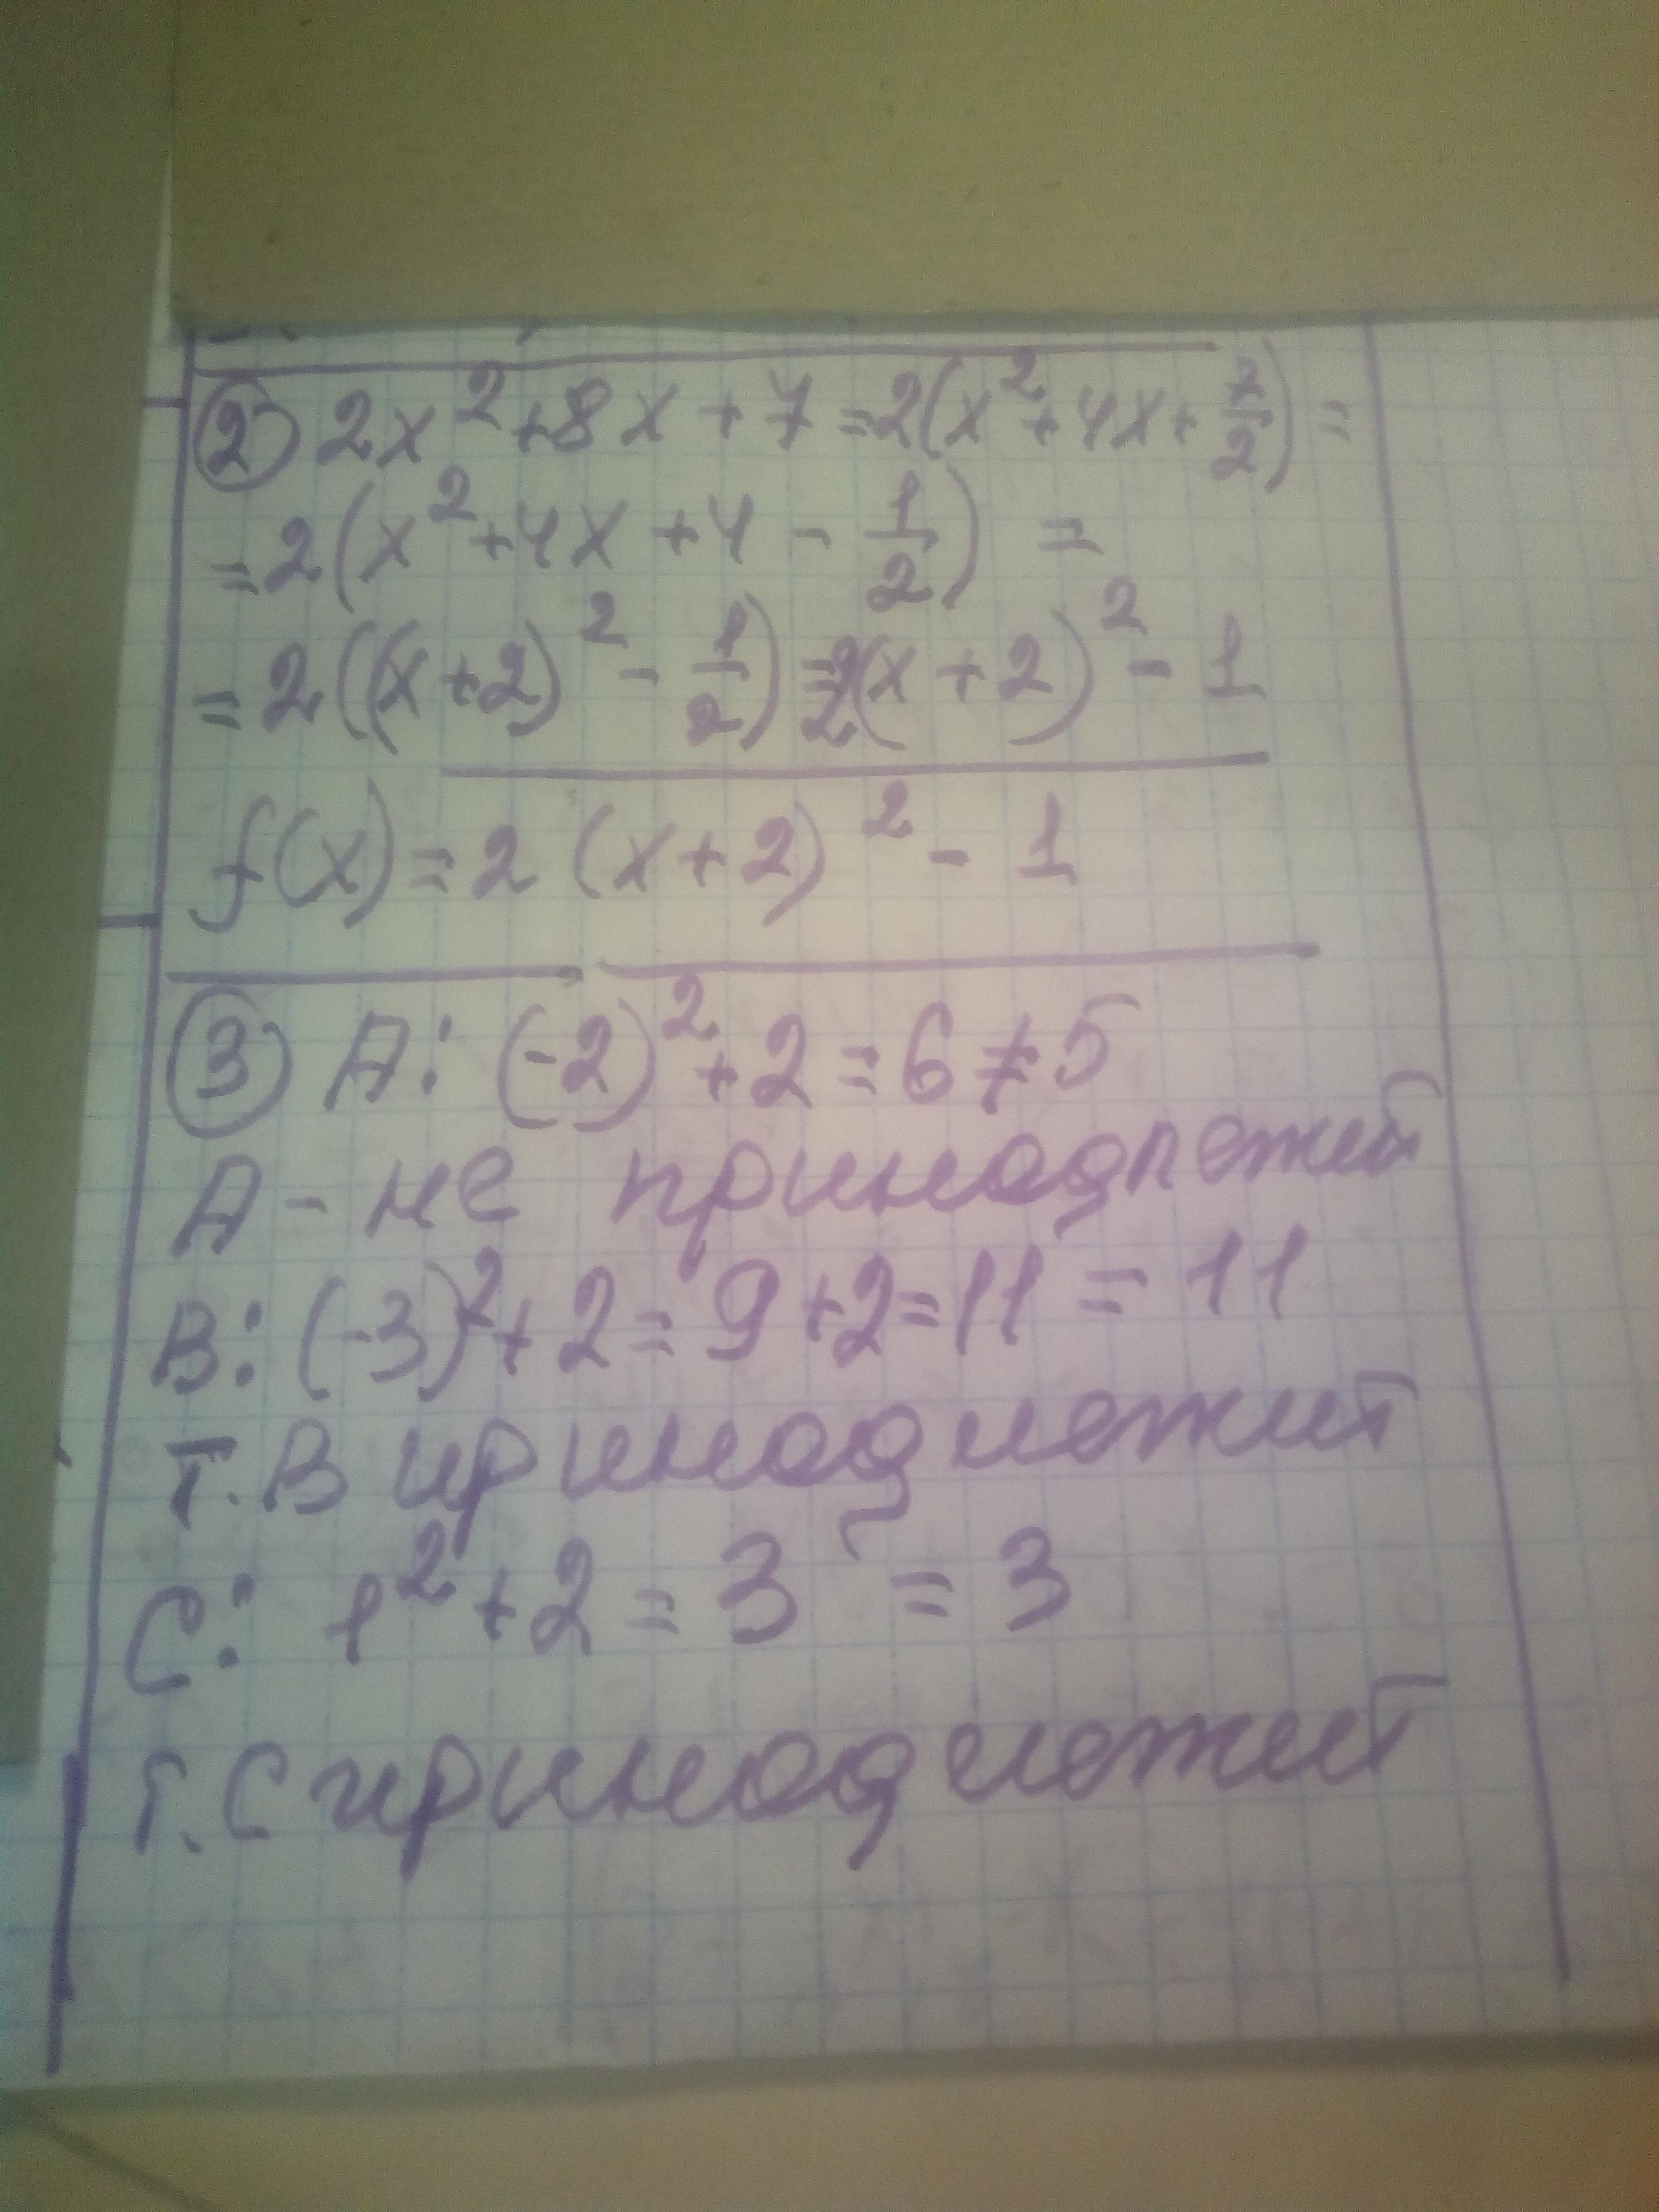 ② 2x² + 8x + 7 = 2(x² + 4x + 7/2) =
= 2(x² + 4x + 4 - 1/2) =
= 2((x+2)² - 1/2) = 2(x + 2)² - 1
f(x) = 2 (x+2)² - 1
③ A: (-2)² + 2 = 6 ≠ 5
A - не принадлежит
B: (-3)² + 2 = 9 + 2 = 11 = 11
Т. В принадлежит
C: 1² + 2 = 3 = 3
Т. С принадлежит